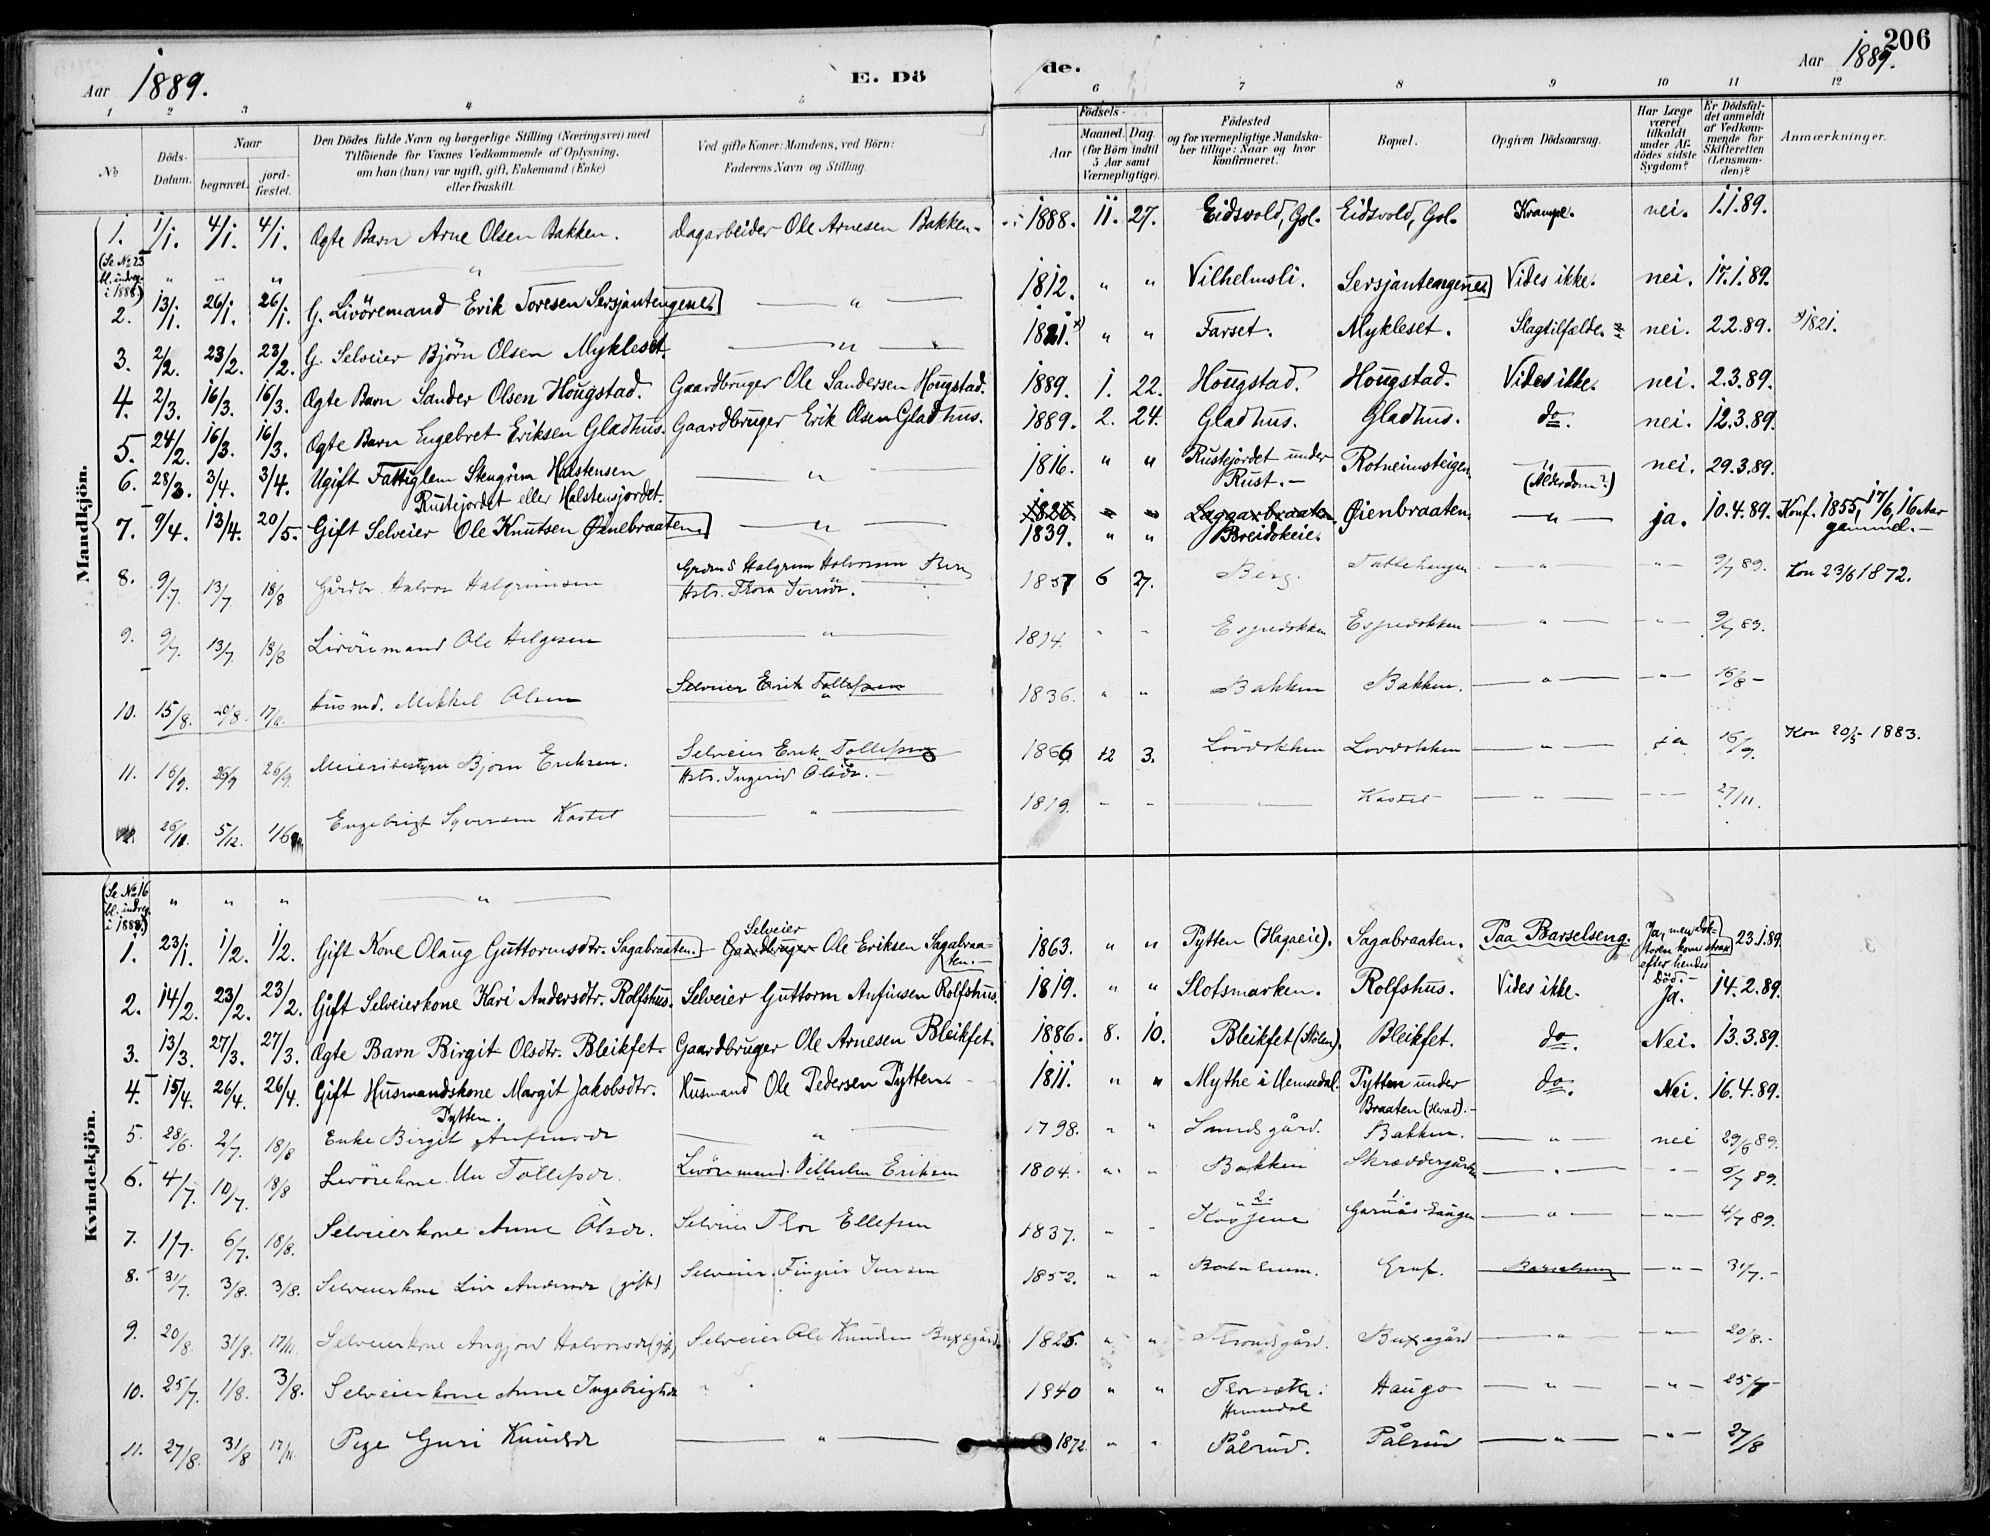 206
Aar 1889. E. Dö de. Aar 1889.
1 2 3 4 5 6 7 8 9 10 11 12
No Döds-Datum. Naar begravet. jord-fæstet. Den Dödes fulde Navn og borgerlige Stilling (Næringsvei) med Tilföiende for Voxnes Vedkommende af Oplysning, om han (hun) var ugift, gift, Enkemand (Enke) eller fraskilt. Ved gifte Koner: Mandens, ved Börn: Faderens Navn og Stilling. Födsels- Aar Maaned. Dag. (for Börn indtil 5 Aar samt Værnepligtige). Födested og for værnepligtige Mandskaber tillige: Naar og hvor konfirmeret. Bopæl. Opgiven Dödsaarsag. Har Læge været tilkaldt under Afdödes sidste Sygdom? Er Dödsfaldet anmeldt af Vedkommende for Skifteretten (Lensmanden)? Anmærkninger.
Mandkjön.
1. 1/1. 4/1. 4/1. Ægte Barn Arne Olsen Bakken. Dagarbeider Ole Arnesen Bakken. 1888. 11. 27. Eidsvold, Gol. Eidsvold, Gol. Krampe. nei. 1.1.89.
(Se No 23 bl. indreg. i 1888.) " " " "
2. 13/1. 26/1. 26/1. G. Livöremand Erik Toresen Sersjantengene. " 1812. " " Vilhelmsli. Sersjantengene. Vides ikke. nei. 17.1.89.
3. 2/2. 23/2. 23/2. G. Selveier Björn Olsen Mykleset. " 1821. *) " " Farset. Mykleset. Slagtilfælde. nei. 2.2.89. *) 1821.
4. 2/3. 16/3. 16/3. Ægte Barn Sander Olsen Hougstad. Gaardbruger Ole Sandersen Hougstad. 1889. 1. 22. Hougstad. Hougstad. Vides ikke. nei. 2.3.89.
5. 24/2. 16/3. 16/3. Ægte Barn Engebret Eriksen Gladhus. Gaardbruger Erik Olsen Gladhus. 1889. 2. 24. Gladhus. Gladhus. do. nei. 12.3.89.
6. 28/3. 3/4. 3/4. Ugift Fattiglem Stengrim Halstensen Rustejordet eller Halstensjordet. " 1816. " " Rustejordet under Rust. Rotneimsteigen. " (Alderdom?) nei. 29.3.89.
7. 9/4. 13/4. 20/5. Gift Selveier Ole Knutsen Öinebraaten. " 1826. 1839. " " Laggarbraaten. Breidokeie. Öienbraaten. " ja. 10.4.89. Konf. 1855, 17/6, 16 Aar gammel.
8. 9/7. 13/7 18/8 Gårdbr. Halvor Halgrimsen Halgrim Halvorsen Berg 1857 6 27. Berg. " " 9/7 89. Kon 23/6 1872.
9. 9/7. 13/7. 18/8 Livöremand Ole Helgesen " 1814. " " Espedokken Espedokken " " 9/7 89.
10. 15/8. 20/8. 17/11. Husmd. Mikkel Olsen Selveier Erik Tollefsen 1836. " " Bakken Bakken. " " 16/8
11. 16/9. 26/9 26/9. Björn Eriksen. Selveier Erik Tollefsen Ingerid Olsdr. 1866 12 3. Lövdokken Lovdokken " ja 16/9. Kon 20/5 1883.
12. 26/11. 5/12. Engebrigt Syversen Kastet " 1819. " " " Kastet " " 27/11.
Kvindekjön.
(Se No 16 bl. indreg. i 1888.) " " " "
1. 23/1. 1/2. 1/2. Gift Kone Olaug Guttormsdtr. Sagabraaten. Gaardbruger Selveier Ole Eriksen Sagabraaten. 1863. " " Pytten (Hagaeie). Sagabraaten. Paa Barselseng. Ja, men doktoren kom strax efter hendes Död. 23.1.89.
2. 14/2. 23/2. 23/2. Gift Selveierkone Kari Andersdtr. Rolfshus. Selveier Guttorm Anfinsen Rolfshus. 1819. " " Slotsmarken. Rolfshus. Vides ikke. Ja. 14.2.89.
3. 13/3. 27/3. 27/3. Ægte Barn Birgit Olsdtr. Bleikfet. Gaardbruger Ole Arnesen Bleikfet. 1886. 8. 10. Bleikfet (Stölen). Bleikfet. do. Nei. 13.3.89.
4. 15/4. 26/4. 26/4. Gift Husmandskone Margit Jakobsdtr. Pytten. Husmand Ole Pedersen Pytten. 1811. " " Mythe i Hemsedal. Pytten under Braaten (Herad). do. Nei. 16.4.89.
5. 28/6. 2/7. 18/8 Enke Birgit Anfinsdr " 1798. " " Bakken. " nei 29/6 89.
6. 4/7. 10/7. 18/8 Livörekone Un Tollefsdr. Livöremand Vilhelm Eriksen 1804. " " Bakken Skræddergården " " 5/7 89.
7. 1/7. 6/7. 18/8. Selveierkone Anne Olsdr. Selveier Thor Ellefsen 1837. " " 2. 1. Garnås " " 4/7 89.
8. 31/7. 3/8. 3/8. Selveierkone Liv Andersdr (gift) Selveier Fingar Iversen 1852. " " Gruf. Barselseng " 31/7.
9. 20/8. 31/8. 17/11. Selveierkone Angjerd Halvorsdr (gift) Selveier Ole Knudsen Buxegård. 1825. " " Trondsgård. Buxegård " " 20/8.
10. 25/7. 1/8. 3/8. Selveierkone Anne Ingebrigtsdr " 1840 " " Hemsedal Haugo " " 25/7
11. 27/8. 31/8 17/11. Pige Guri Knudsdr " 1872. " " Pålsrud. Pålsrud " " 27/8